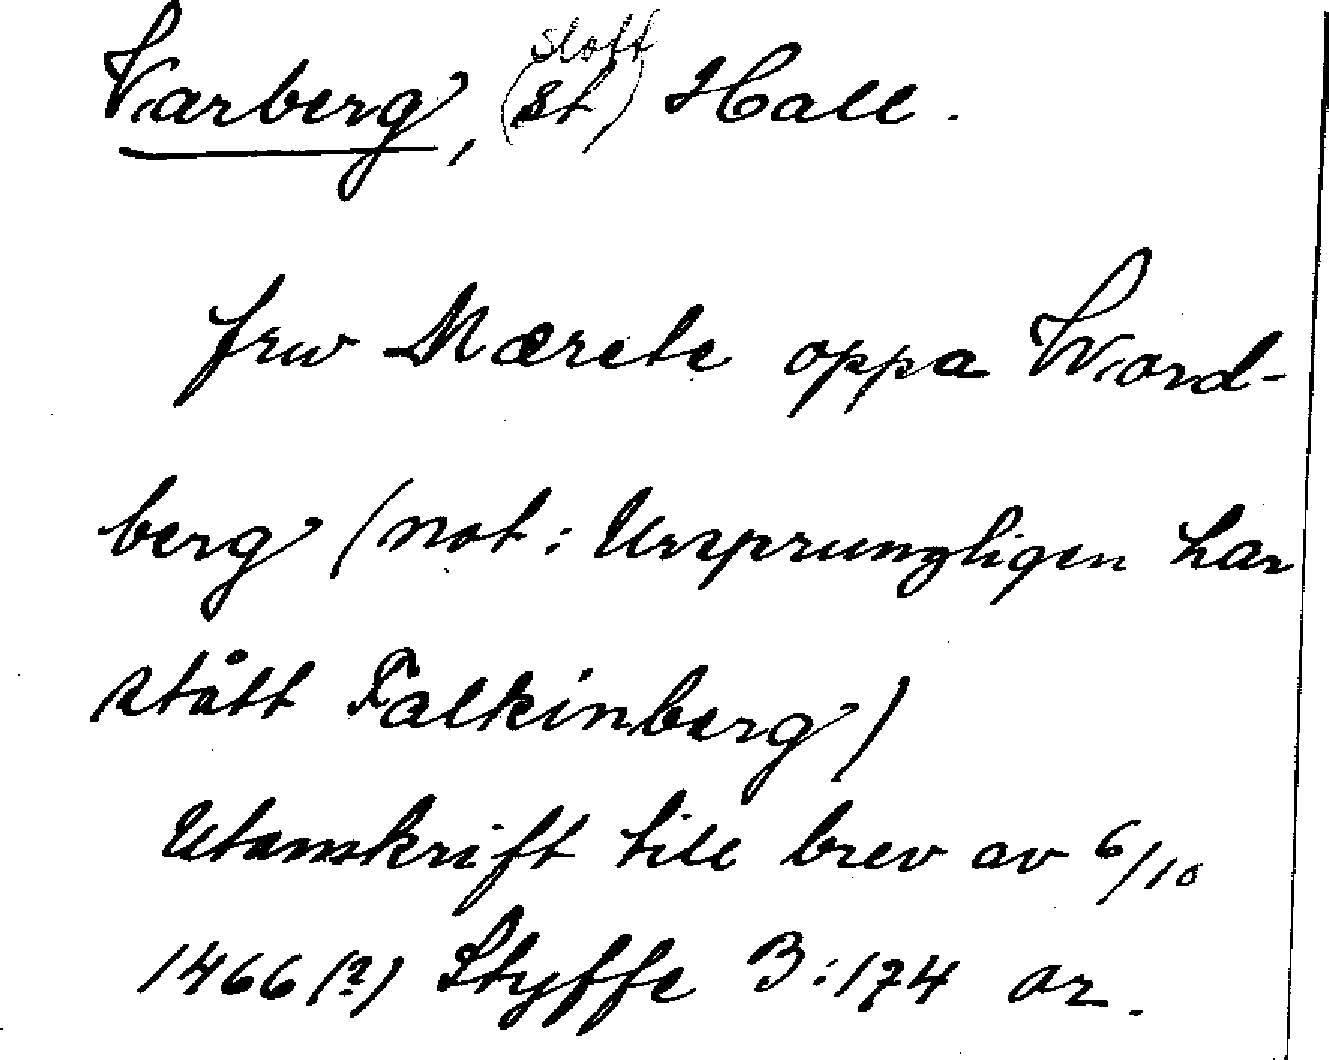 Varberg, (St) Hall.
slott
frw Mærete oppa Ward-
berg (not: Ursprungligen har
stått Falkinberg)
Utanskrift till brev av 6/10
1466(?) Styffe 3:174 or.